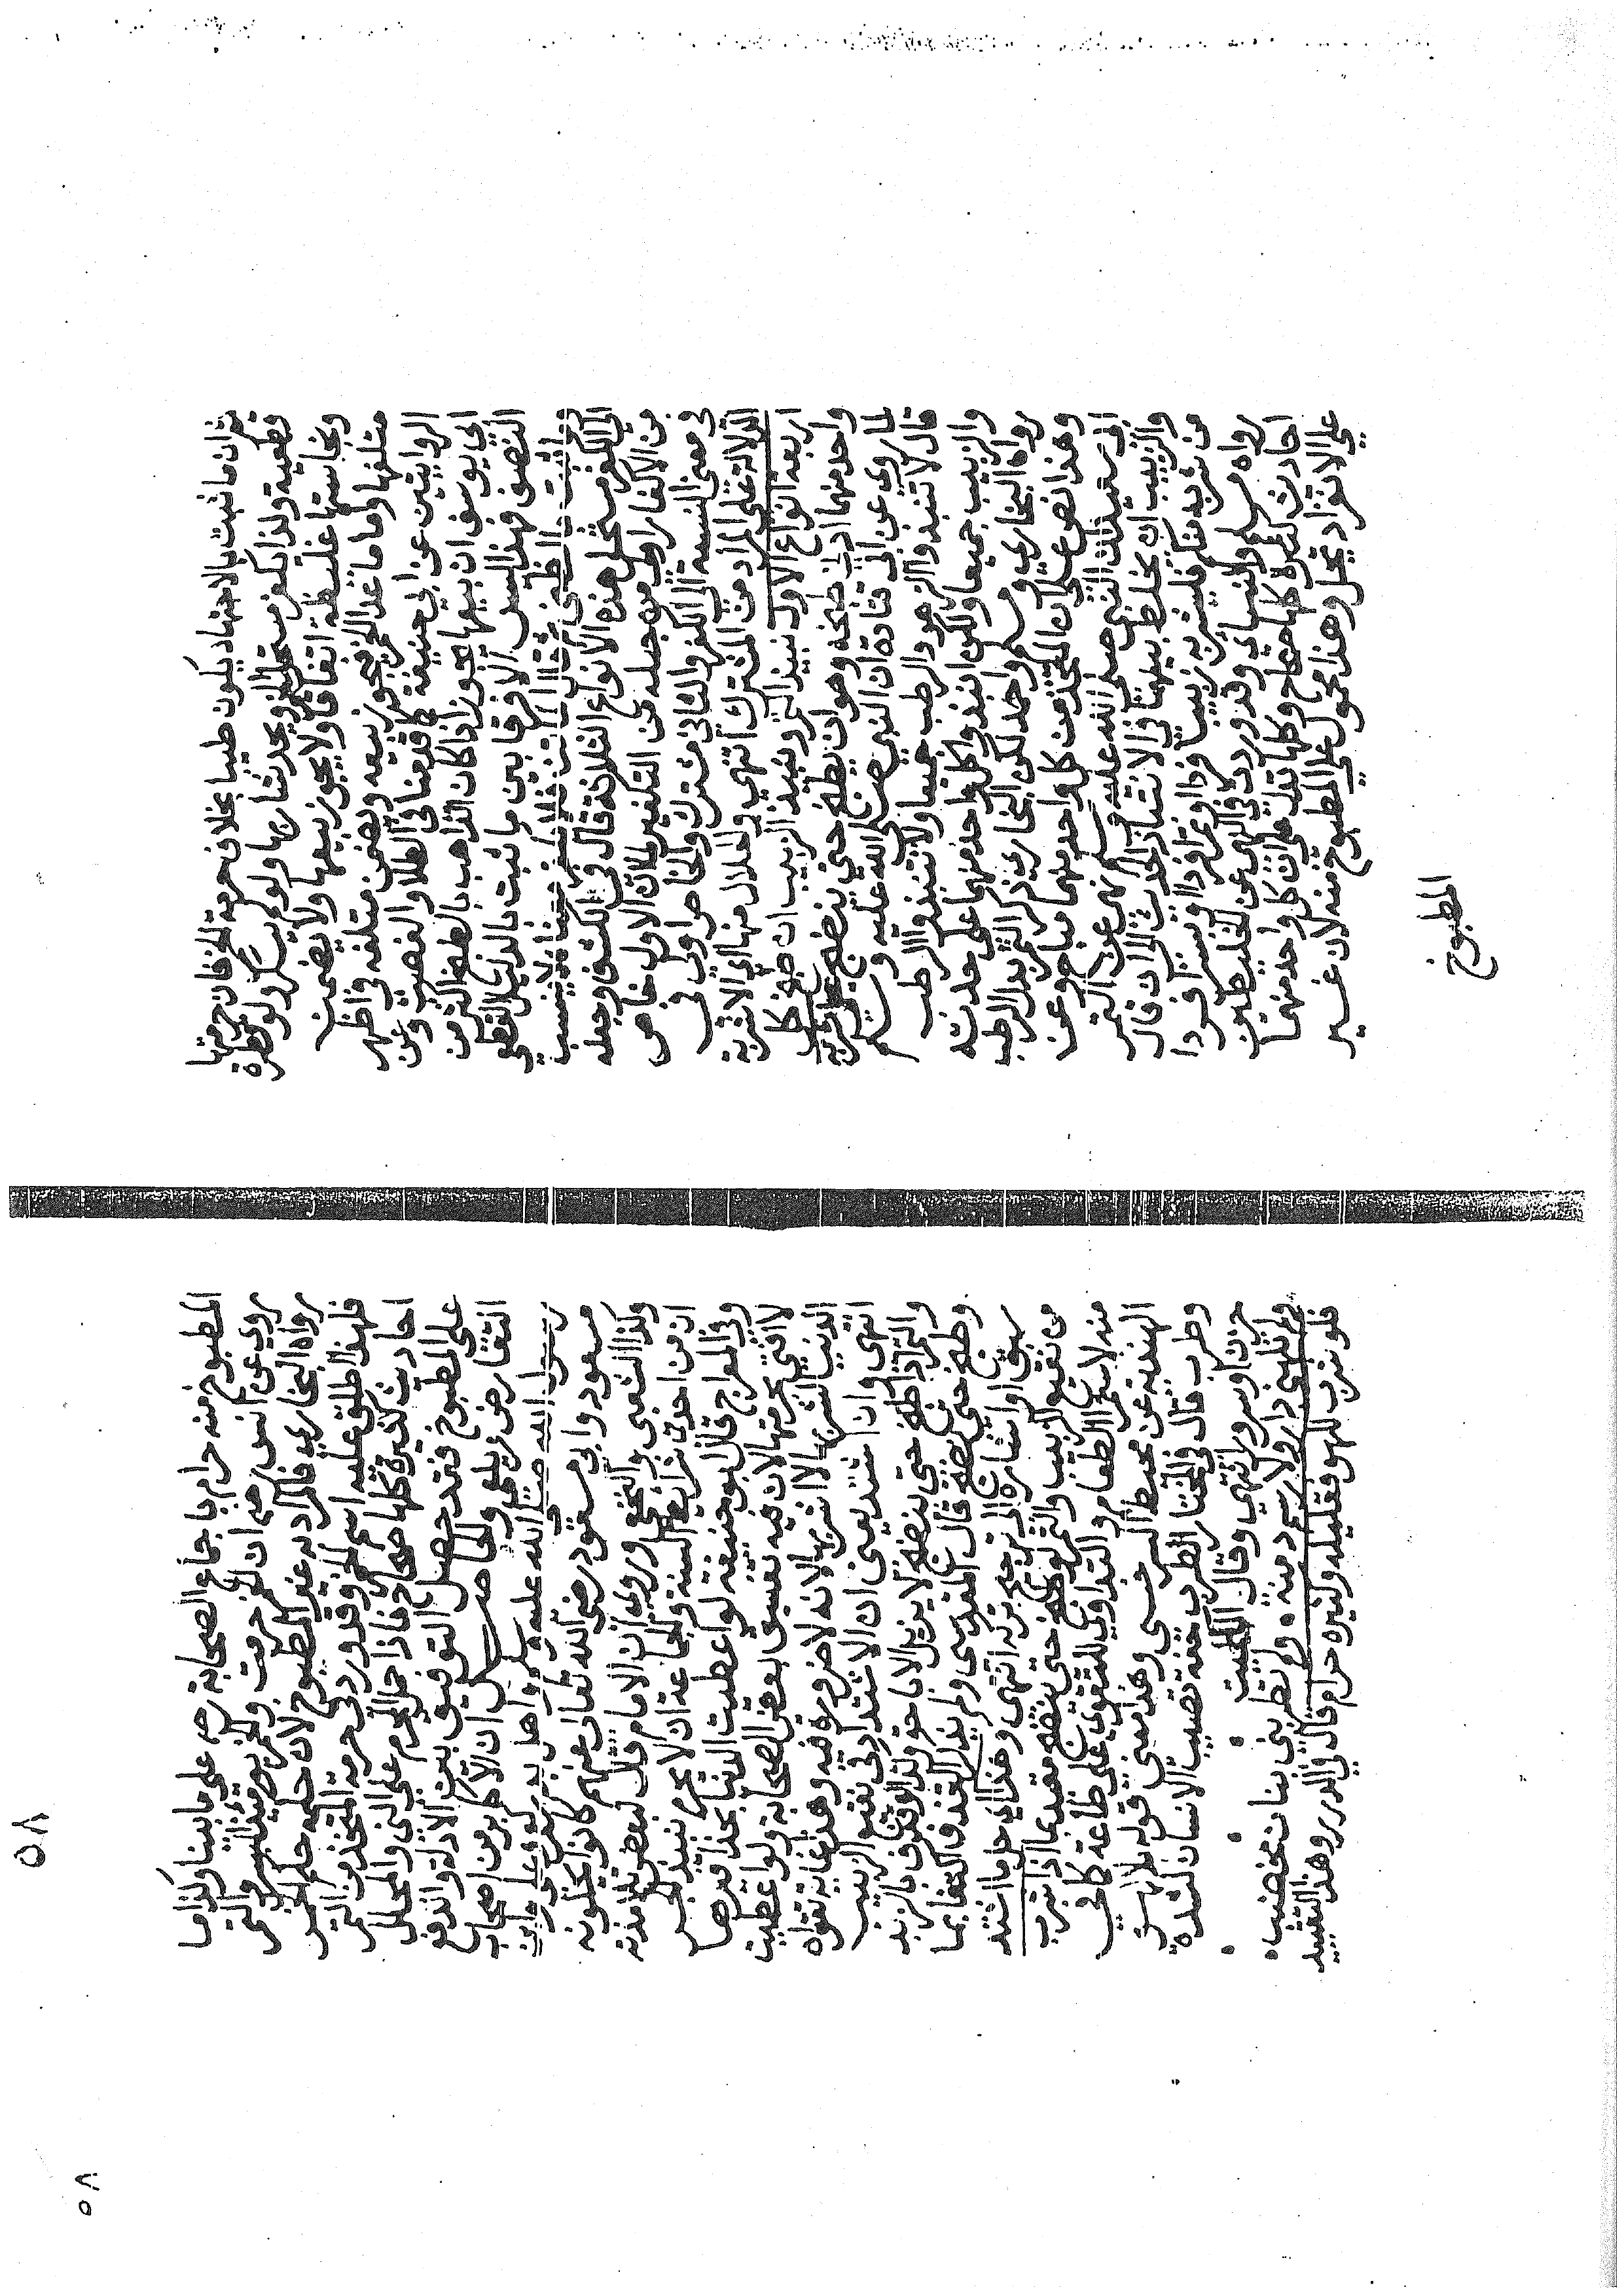 ثم ان ما ثبت بالاجتهاد يكون ظنيا بخلاف حرمة الخمر فان حرمتها
قطعية ولذا يكفر مستحل الخمر ويحد شاربها ولو لم يسكر ولو قطرة
ونجاستها غليظة اتفاقا ولا يجوز بيعها ولا يضمن
متلفها واما ما عدا الخمر فيجوز بيعه ويضمن متلفه في اظهر
الروايتين عن ابي حنيفة كما قدمنا في الطلا والغصب وعن
ابي يوسف ان بيعها يجوز اذا كان الذاهب بالطبخ اكثر من
النصف فهذا ليس الا فرقا بين ما ثبت بالدليل القطعي
وما ثبت بالظني
الى الكفر مستحل هذه الانواع الثلاثة قال في الكشف وجعله
من الاكفار اولى من جعله من التكفير لان الاول خاص
في معنى النسبة الى الكفر والثاني مشترك والخاص اولى في
الدلالة على المراد من المشترك انتهى والحلال منها اي الاشربة
اربعة انواع الاول نبيذ التمر ونبيذ الزبيب ان طبخ كل
واحد منهما ادنى طبخه وهو ان يطبخ حتى ينضج
لما روي عن ابي قتادة ان النبي صلى الله عليه وسلم
قال لا تنبذوا الزهو والرطب جميعا ولا تنبذوا الرطب
والزبيب جميعا ولكن انبذوا كل واحد منهما على حدته
رواه البخاري ومسلم واحمد لكن البخاري ذكر التمر بدل الرطب
وهذا نص على ان المتخذ من كل واحد منهما مباح وعن
ابي سعيد ان النبي صلى الله عليه وسلم نهى عن التمر
والزبيب ان يخلط بينهما في الانتباذ الحديث الى ان قال
من شربه منكم فليشربه زبيبا فردا او تمرا فردا او بسرا فردا
رواه مسلم والنسائي وقد ورد في النهي عن الخليطين
احاديث كثيرة كلها صحاح وكلها تدل على ان كل واحد منهما
على الانفراد يحل وهذا محمول على المطبوخ منه لان غير
المطبوخ
المطبوخ منه حرام باجماع الصحابة رضهم على ما بينا وكذا ما
روي عن انس رضه ان الخمر حرمت والخمر يومئذ البسر والتمر
رواه البخاري فالمراد به غير المطبوخ لان حكمه حكم الخمر
فلهذا اطلق عليه اسم الخمر وقد ورد في حرمة المتخذ من التمر
احاديث كثيرة كلها صحاح فاذا حمل المحرم على الني والمحلل
على المطبوخ فقد حصل التوفيق بين الادلة واندفع
التعارض زيلعي والحاصل ان الاكابر من اصحاب
رسول الله صلى الله عليه وسلم واهل بدر كعمر وعلي وابن
مسعود وابي مسعود رضي الله تعالى عنهم كانوا يحلونه
وكذا الشعبي والنخعي وروي ان الامام قال لبعض تلامذته
ان من احدى شرايع السنة والجماعة ان لا يحرم نبيذ الجر
وفي المعراج قال ابو حنيفة لو اعطيت الدنيا بحذافيرها
لا افتي بحرمتها لان فيه تفسيق بعض الصحابة ولو اعطيت
الدنيا لشربها لا اشربها لانه لا ضرورة فيه وهذا غاية تقواه
انتهى وان اشتد يعني ان الاشتداد في نقيع الزبيب
والتمر اذا طبخ حتى ينضج لا يزيل الاباحة ولو قذف بالزبد
وطبخ حتى نضج قال المقدسي ولم يذكر القذف اكتفا بما
سبق او اشارة الى ترجيح تركه انتهى وهذا اي حل ما اشتد
من نقيع الزبيب والتمر وطبخ حتى ينضج مقيد بما اذا شرب
منه لاستمرا الطعام والتداوي للتقوي على طاعة كما في
الهندية عن محيط السرخسي وهذا معنى قوله بلا لهو
وطرب قال في المختار الطرب خفة تصيب الانسان لشدة
حزن او سرور انتهى وقال الكميت
ولم تلهني دار ولا رسم دمنة ولم يتطربني بنان مخضب
فلو شرب للهو فقليله وكثيره حرام قال في الدرر وهذا التقييد
٥٨
٥٨